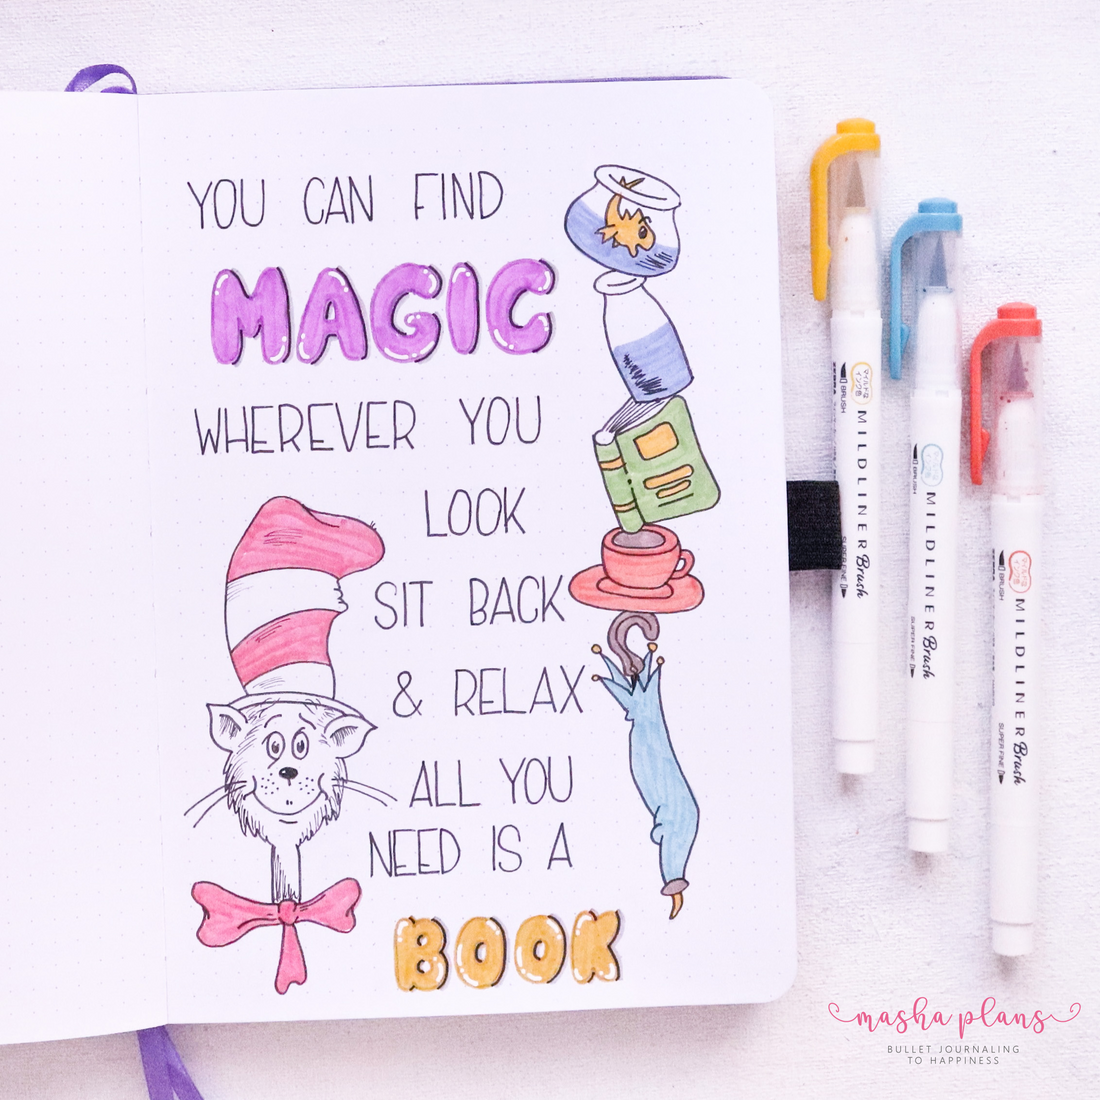 YOU CAN FIND
MAGIC
WHEREVER YOU
LOOK
SIT BACK
& RELAX
ALL YOU
NEED IS A
BOOK
BRUSH
MILDLINER Brush
SUPER FINE
BRUSH
MILDLINER Brush
SUPER FINE
BRUSH
MILDLINER Brush
SUPER FINE
masha plans
BULLET JOURNALING
TO HAPPINESS